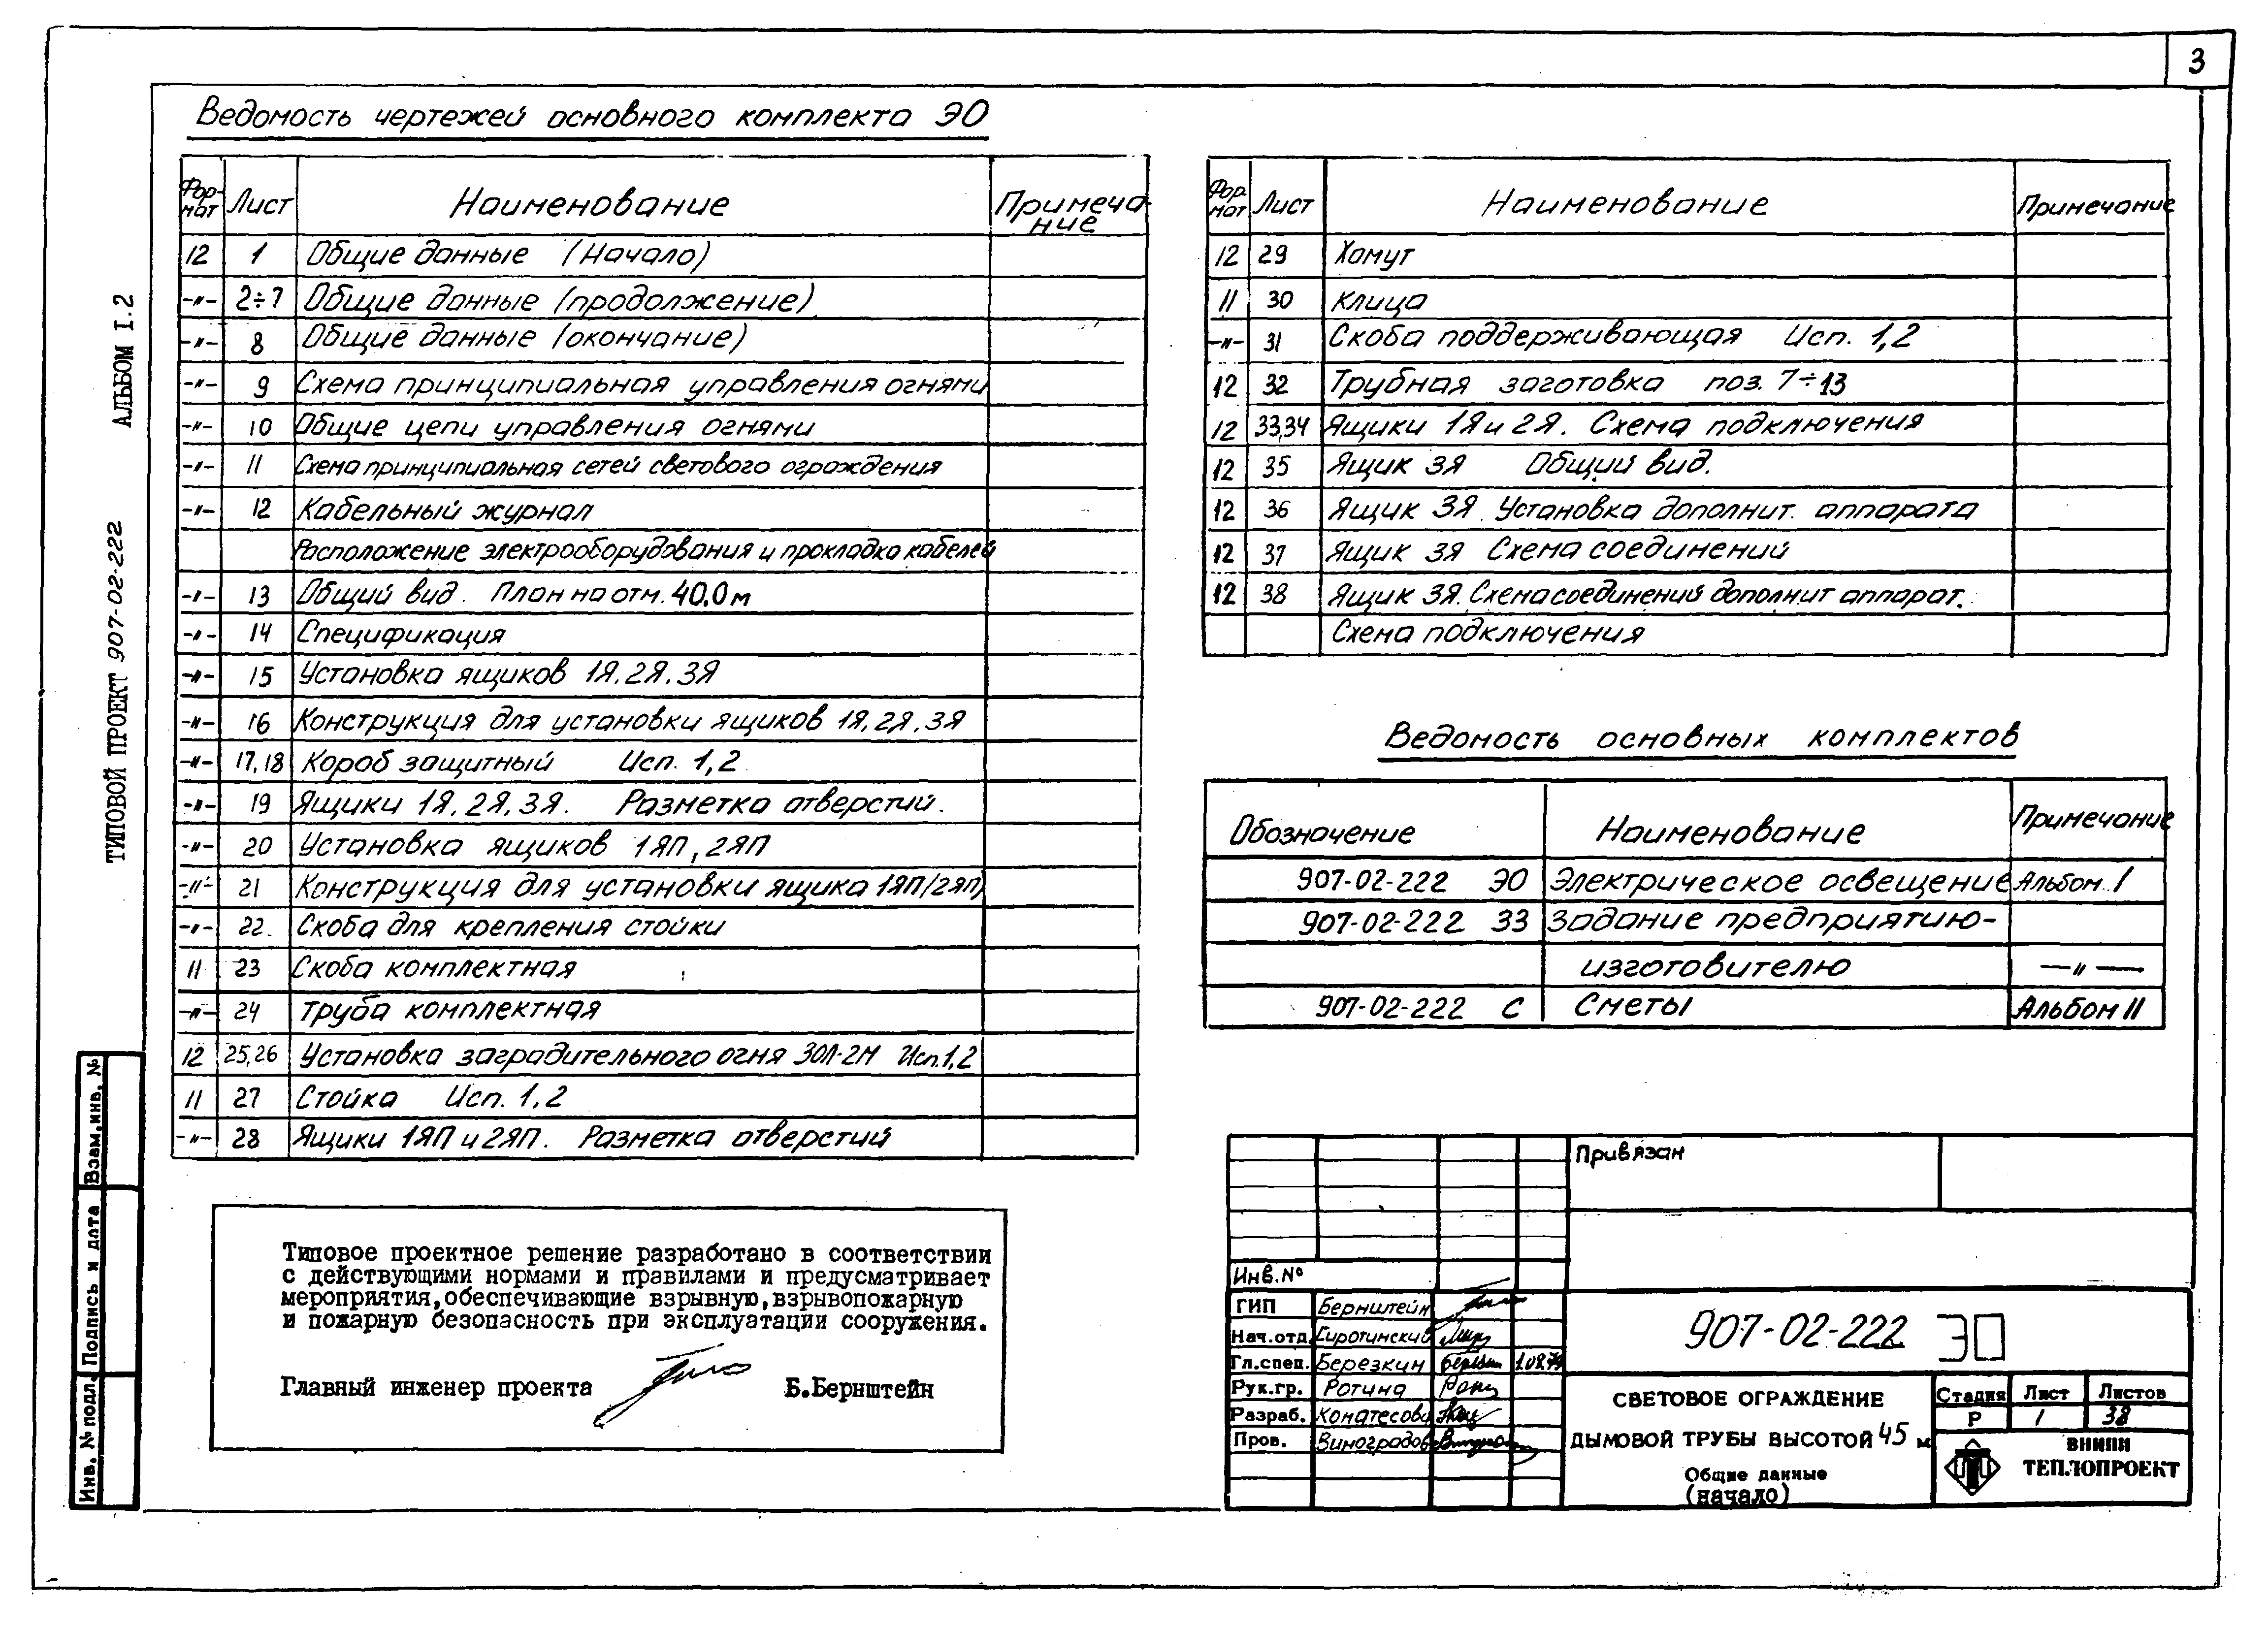 3
Ведомость чертежей основного комплекта ЭО
Фор-мат Лист Наименование Примеча-ние
12 1 Общие данные (Начало)
-"- 2÷7 Общие данные (продолжение)
-"- 8 Общие данные (окончание)
-"- 9 Схема принципиальная управления огнями
-"- 10 Общие цепи управления огнями
-"- 11 Схема принципиальная сетей светового ограждения
-"- 12 Кабельный журнал
Расположение электрооборудования и прокладка кабелей
-"- 13 Общий вид. План на отм. 40.0 м
-"- 14 Спецификация
-"- 15 Установка ящиков 1Я, 2Я, 3Я
-"- 16 Конструкция для установки ящиков 1Я, 2Я, 3Я
-"- 17,18 Короб защитный Исп. 1,2
-"- 19 Ящики 1Я, 2Я, 3Я. Разметка отверстий.
-"- 20 Установка ящиков 1ЯП, 2ЯП
-"- 21 Конструкция для установки ящика 1ЯП/2ЯП)
-"- 22. Скоба для крепления стойки
11 23 Скоба комплектная
-"- 24 Труба комплектная
12 25,26 Установка заградительного огня ЗОЛ-2М Исп.1,2
11 27 Стойка Исп. 1,2
-"- 28 Ящики 1ЯП и 2ЯП. Разметка отверстий
Фор-мат Лист Наименование Примечание
12 29 Хомут
11 30 Клица
-"- 31 Скоба поддерживающая Исп. 1,2
12 32 Трубная заготовка поз. 7÷13
12 33,34 Ящики 1Я и 2Я. Схема подключения
12 35 Ящик 3Я Общий вид.
12 36 Ящик 3Я. Установка дополнит. аппарата
12 37 Ящик 3Я Схема соединений
12 38 Ящик 3Я. Схема соединений дополнит. аппарат.
Схема подключения
Ведомость основных комплектов
Обозначение Наименование Примечание
907-02-222 ЭО Электрическое освещение Альбом I
907-02-222 ЗЗ Задание предприятию-
изготовителю -"-
907-02-222 С Сметы Альбом II
ТИПОВОЙ ПРОЕКТ 907-02-222 АЛЬБОМ I.2
Взам.инв. №
Подпись и дата
Инв. № подл.
Типовое проектное решение разработано в соответствии
с действующими нормами и правилами и предусматривает
мероприятия, обеспечивающие взрывную, взрывопожарную
и пожарную безопасность при эксплуатации сооружения.
Главный инженер проекта Б.Бернштейн
Привязан
Инв.№
ГИП Бернштейн
Нач.отд. Сиротинский
Гл.спец. Березкин 1.08.79
Рук.гр. Ротина
Разраб.
Пров. Виноградов
907-02-222 ЭО
СВЕТОВОЕ ОГРАЖДЕНИЕ
ДЫМОВОЙ ТРУБЫ ВЫСОТОЙ 45 м
Общие данные
(начало)
Стадия Лист Листов
Р 1 38
ВНИПИ
ТЕПЛОПРОЕКТ